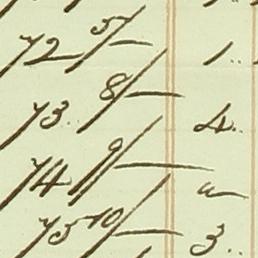 72 5/- 1..
73.. 8/- 4..
74 9/-
75 10/- 3..